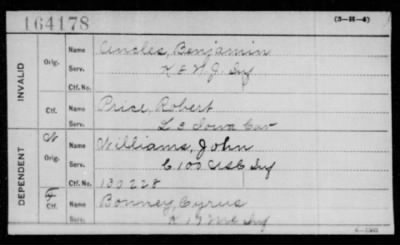 164178
(3-H-4)
INVALID
Orig.
Name Uncles, Benjamin
Serv. K 2 N J Inf
Ctf. No.
Ctf.
Name Price, Robert
Serv. L 3 Iowa Cav
DEPENDENT
Orig.
Name Williams, John
Serv. C 100 USC Inf
Ctf. No. 130228
Ctf.
Name Bonney, Cyrus
Serv. K 19 Me Inf